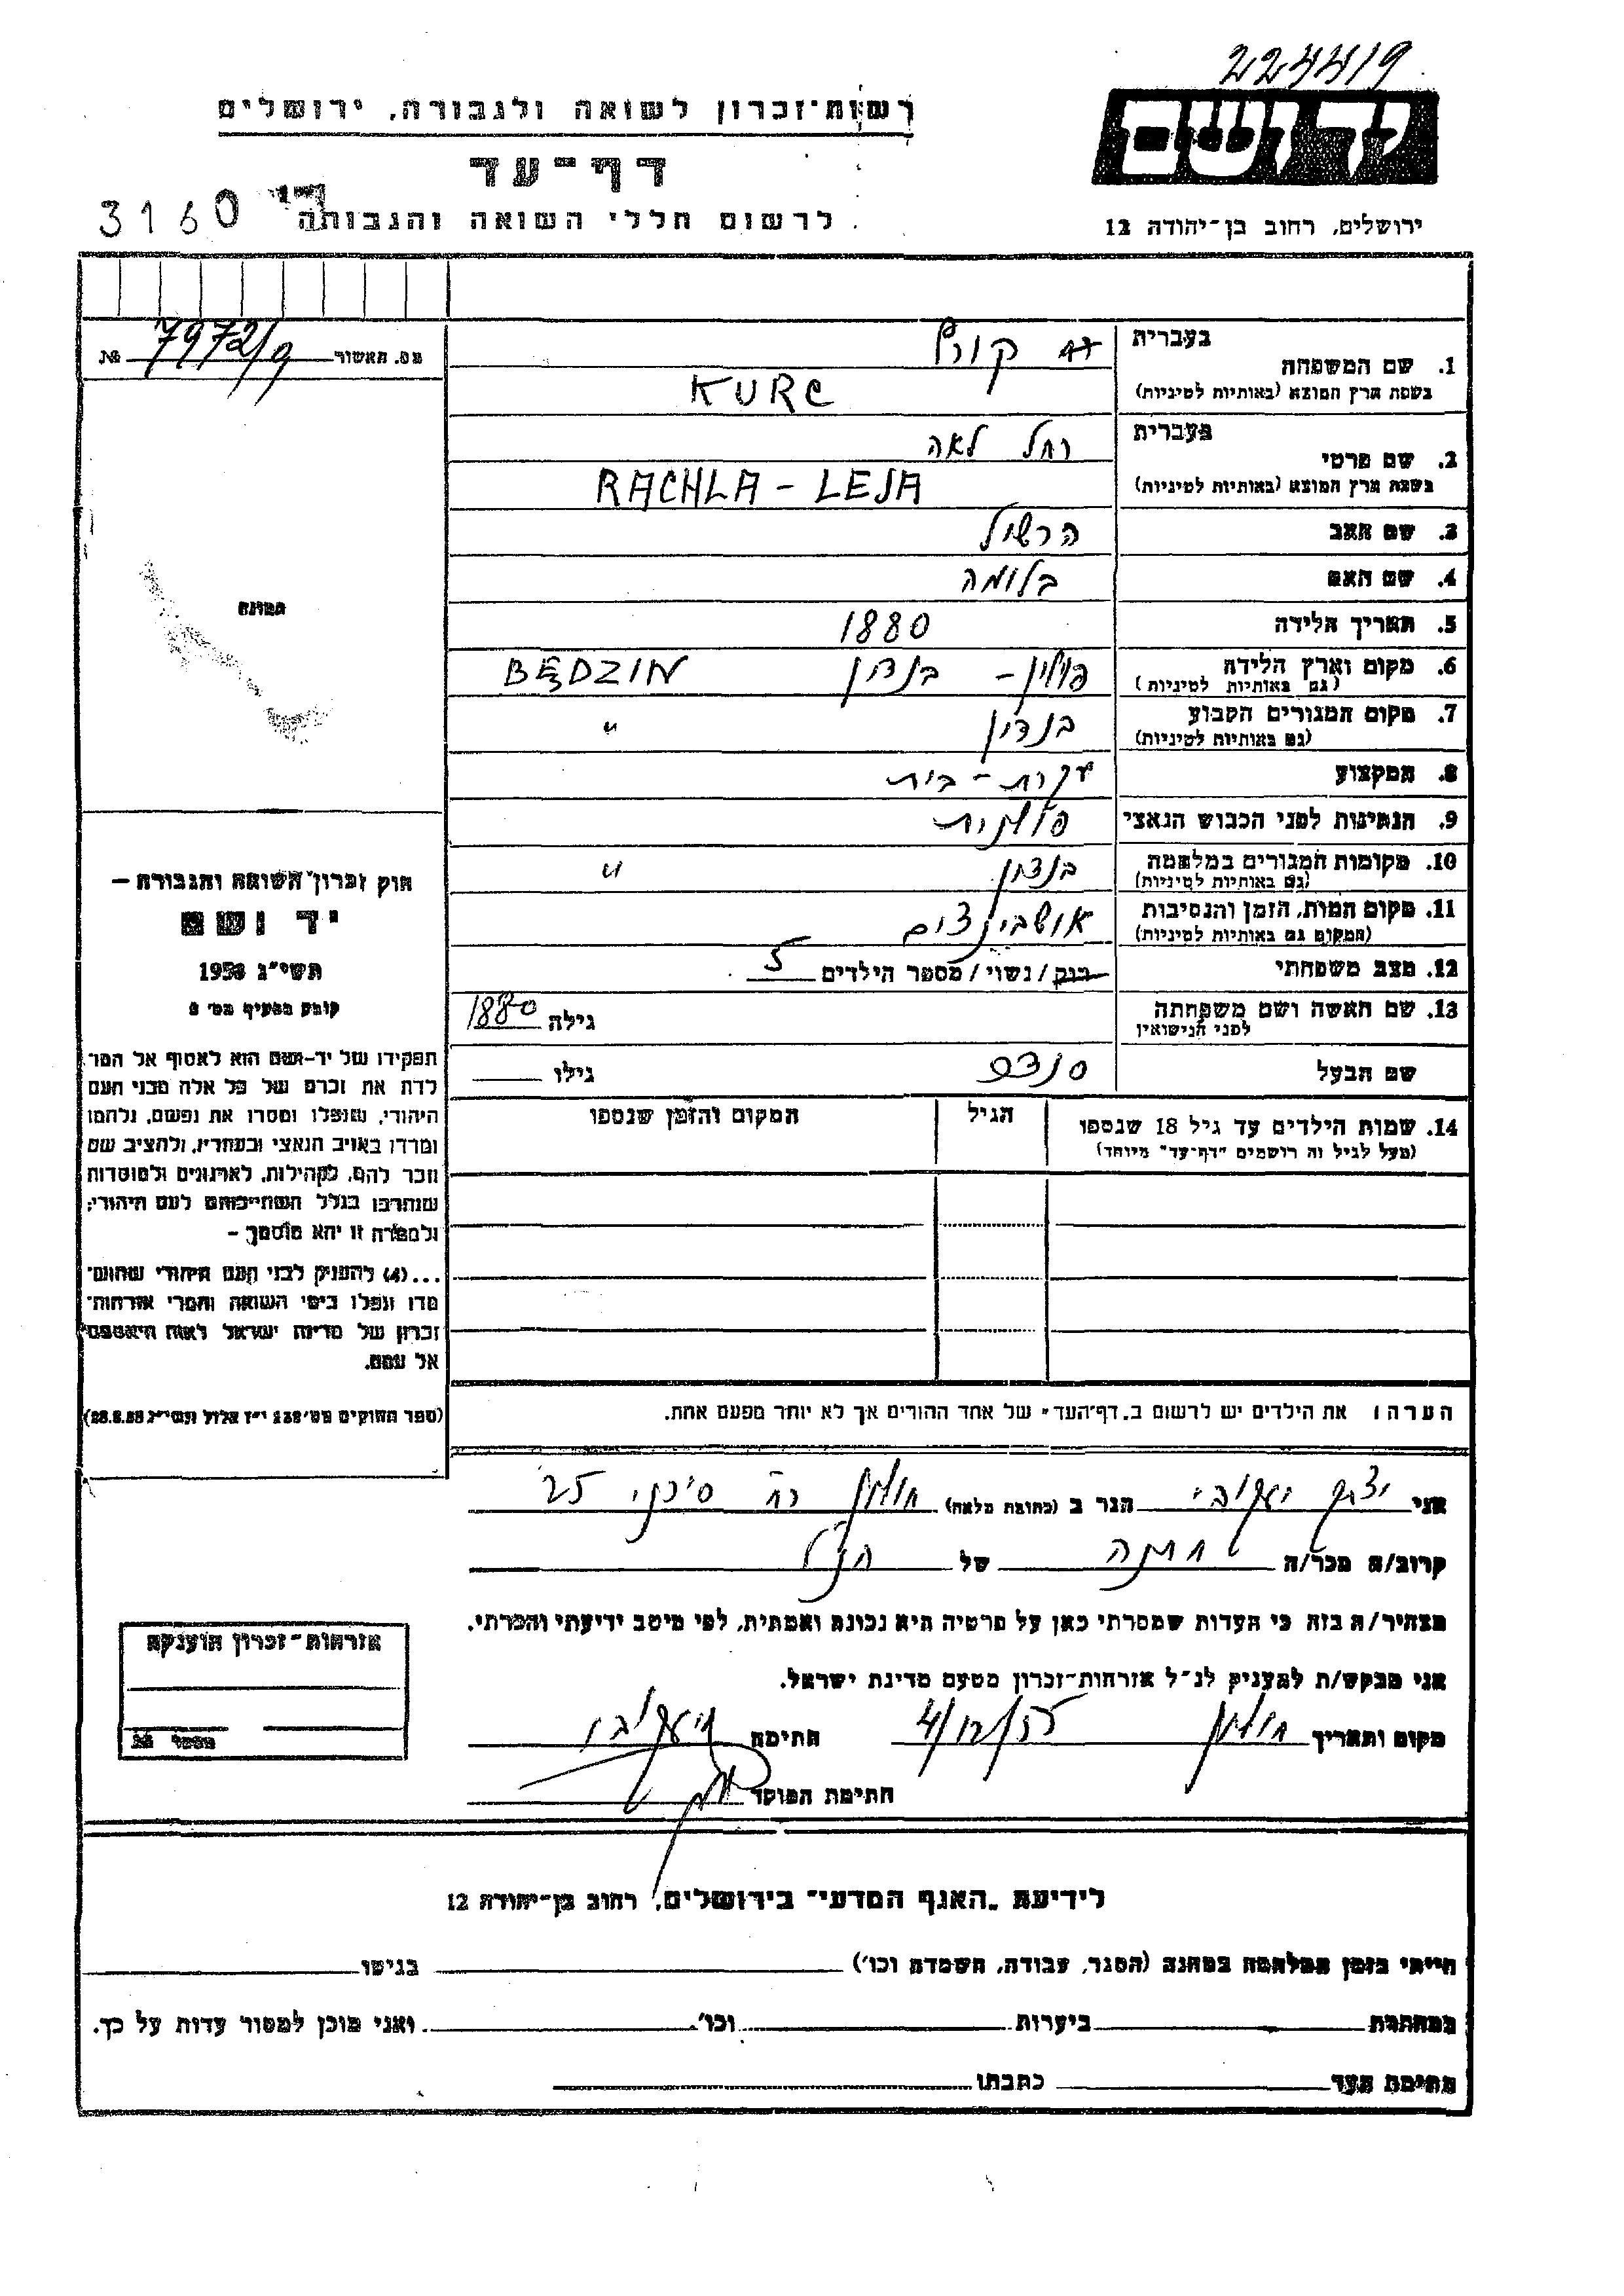 224419
רשות-זכרון לשואה ולגבורה, ירושלים
יד ושם
דף-עד
3160
לרשום חללי השואה והגבורה
ירושלים, רחוב בן-יהודה 12
מס. האשור 7972/9 №
בעברית
1. שם המשפחה קורץ
בשפת ארץ המוצא (באותיות לטיניות) KURC
בעברית
2. שם פרטי רחל לאה
בשפת ארץ המוצא (באותיות לטיניות) RACHLA - LEJA
3. שם האב הרשיל
4. שם האם בלומה
5. תאריך הלידה 1880
6. מקום וארץ הלידה פולין - בנדין BĘDZIN
(גם באותיות לטיניות)
7. מקום המגורים הקבוע בנדין "
(גם באותיות לטיניות)
8. המקצוע עקרת-בית
9. הנתינות לפני הכבוש הנאצי פולנית
10. מקומות המגורים במלחמה בנדין "
(גם באותיות לטיניות)
11. מקום המות, הזמן והנסיבות אושבינצים
(המקום גם באותיות לטיניות)
12. מצב משפחתי רווק / נשוי / מספר הילדים 5
13. שם האשה ושם משפחתה גילה 1880
לפני הנישואין
שם הבעל גילו
14. שמות הילדים עד גיל 18 שנספו הגיל המקום והזמן שנספו
(מעל לגיל זה רושמים "דף-עד" מיוחד)
תמונה
חוק זכרון השואה והגבורה –
יד ושם
תשי"ג 1953
קובע בסעיף מס'
תפקידו של יד-ושם הוא לאסוף אל המו-
לדת את זכרם של כל אלה מבני העם
היהודי, שנפלו ומסרו את נפשם, נלחמו
ומרדו באויב הנאצי ובעוזריו, ולהציב שם
וזכר להם, לקהילות, לארגונים ולמוסדות
שנחרבו בגלל השתייכותם לעם היהודי;
ולמטרה זו יהא מוסמך –
...(4) להעניק לבני העם היהודי שהוש-
מדו ונפלו בימי השואה והמרי אזרחות-
זכרון של מדינת ישראל לאות היאספם
אל עמם.
(ספר החוקים מס' 132 י"ז אלול תשי"ג 28.8.53)
הערה: את הילדים יש לרשום ב"דף-העד" של אחד ההורים אך לא יותר מפעם אחת.
אני יצחק יעקובי הגר ב (כתובת מלאה) חולון רח' סירקין 25
קרוב/ה מכר/ה של הנ"ל
מצהיר/ה בזה כי העדות שמסרתי כאן על פרטיה היא נכונה ואמתית, לפי מיטב ידיעתי והכרתי.
אני מבקש/ת להעניק לנ"ל אזרחות-זכרון מטעם מדינת ישראל.
מקום ותאריך חולון 4/12/55 חתימה יעקובי
חתימת הפוקד
אזרחות-זכרון הוענקה
מספר №
לידיעת "האגף המדעי" בירושלים, רחוב בן-יהודה 12
הייתי בזמן המלחמה במחנה (הסגר, עבודה, השמדה וכו') בגיטו
במחתרת ביערות וכו'. ואני מוכן למסור עדות על כך.
חתימת העד כתבתו